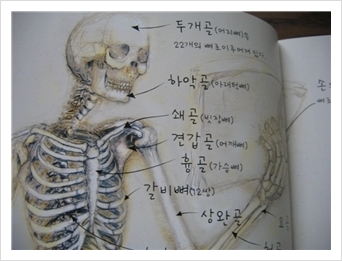 두개골(머리뼈)은
22개의 뼈로이루어져 있다
하악골(아래턱뼈)
쇄골(빗장뼈)
견갑골(어깨뼈)
흉골(가슴뼈)
갈비뼈(12쌍)
상완골
손